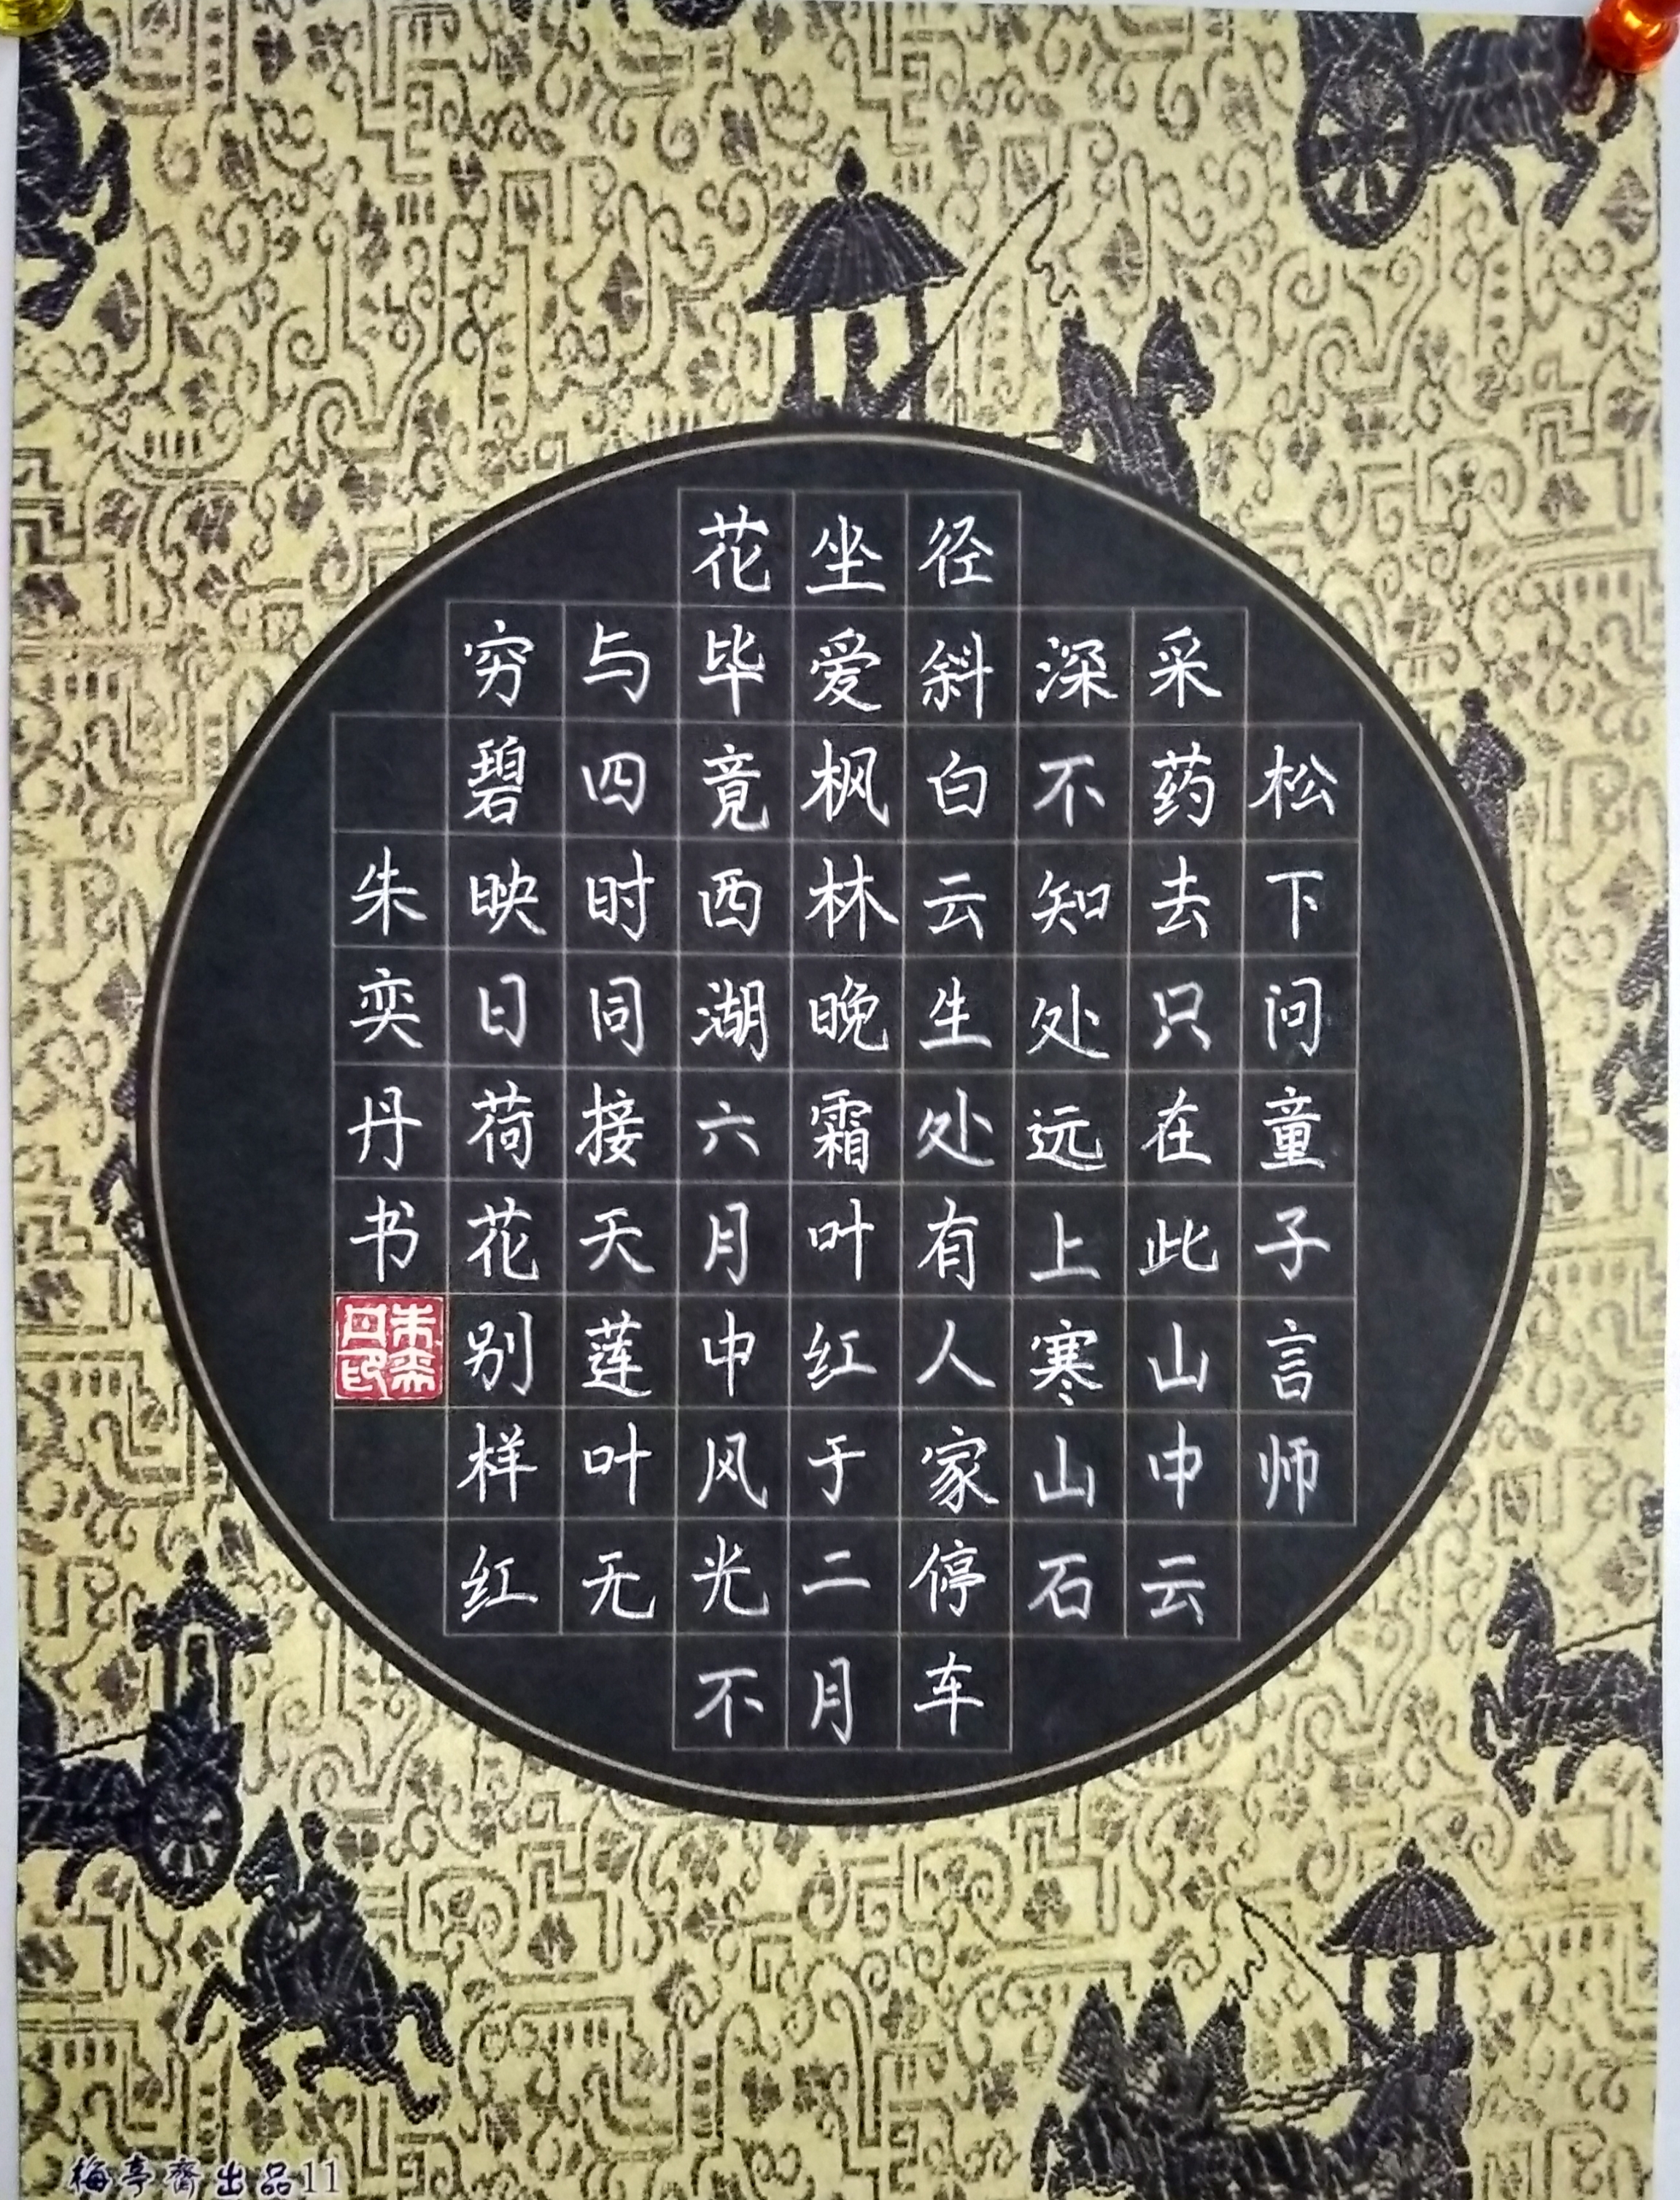 松下问童子言师
采药去只在此山中云
深不知处远上寒山石
径斜白云生处有人家停车
坐爱枫林晚霜叶红于二月
花毕竟西湖六月中风光不
与四时同接天莲叶无
穷碧映日荷花别样红
朱奕丹书
朱奕丹印
梅亭斋出品11